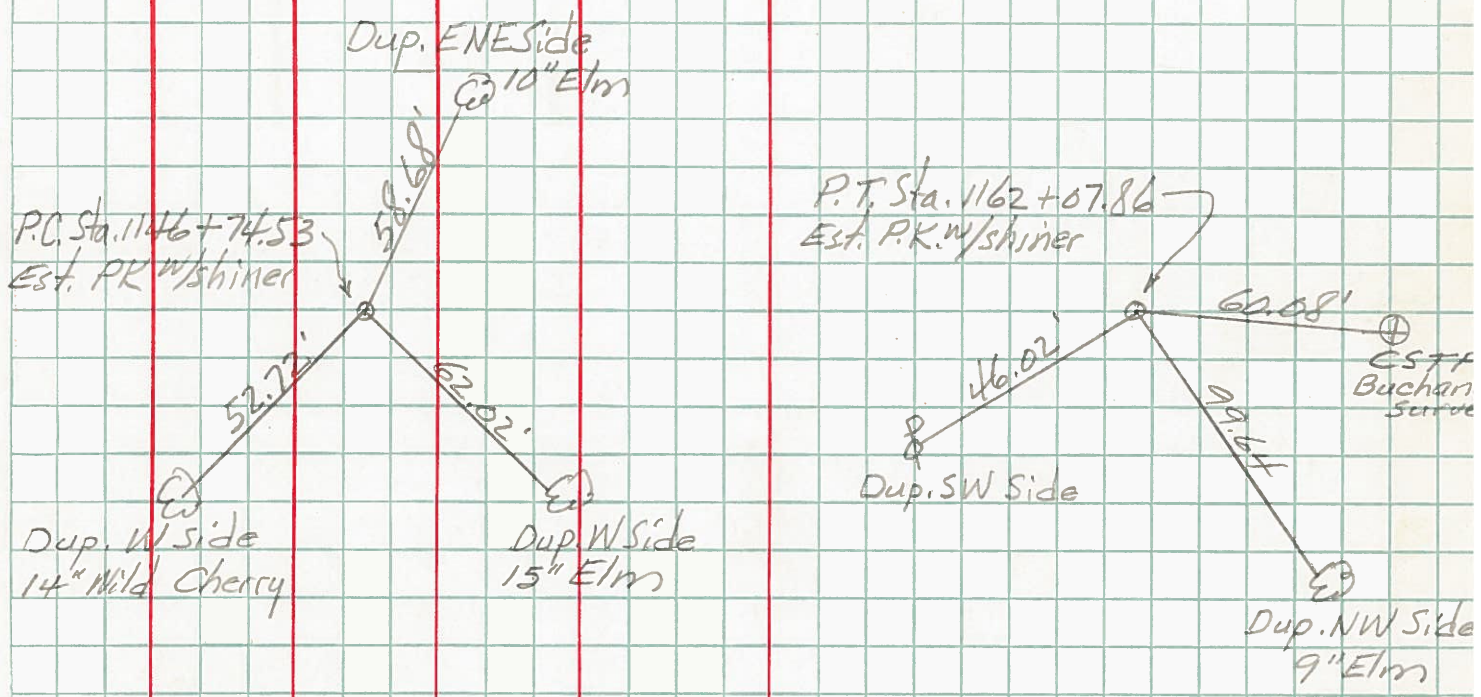 Dup. ENE Side
10" Elm
58.68'
P.C. Sta. 1146+74.53
Est. PK w/shiner
52.72'
62.02'
Dup. W Side
14" Wild Cherry
Dup. W Side
15" Elm
P.T. Sta. 1162+07.86
Est. P.K. w/shiner
60.08'
46.02'
99.64
Buchan
Surve
Dup. SW Side
Dup. NW Side
9" Elm